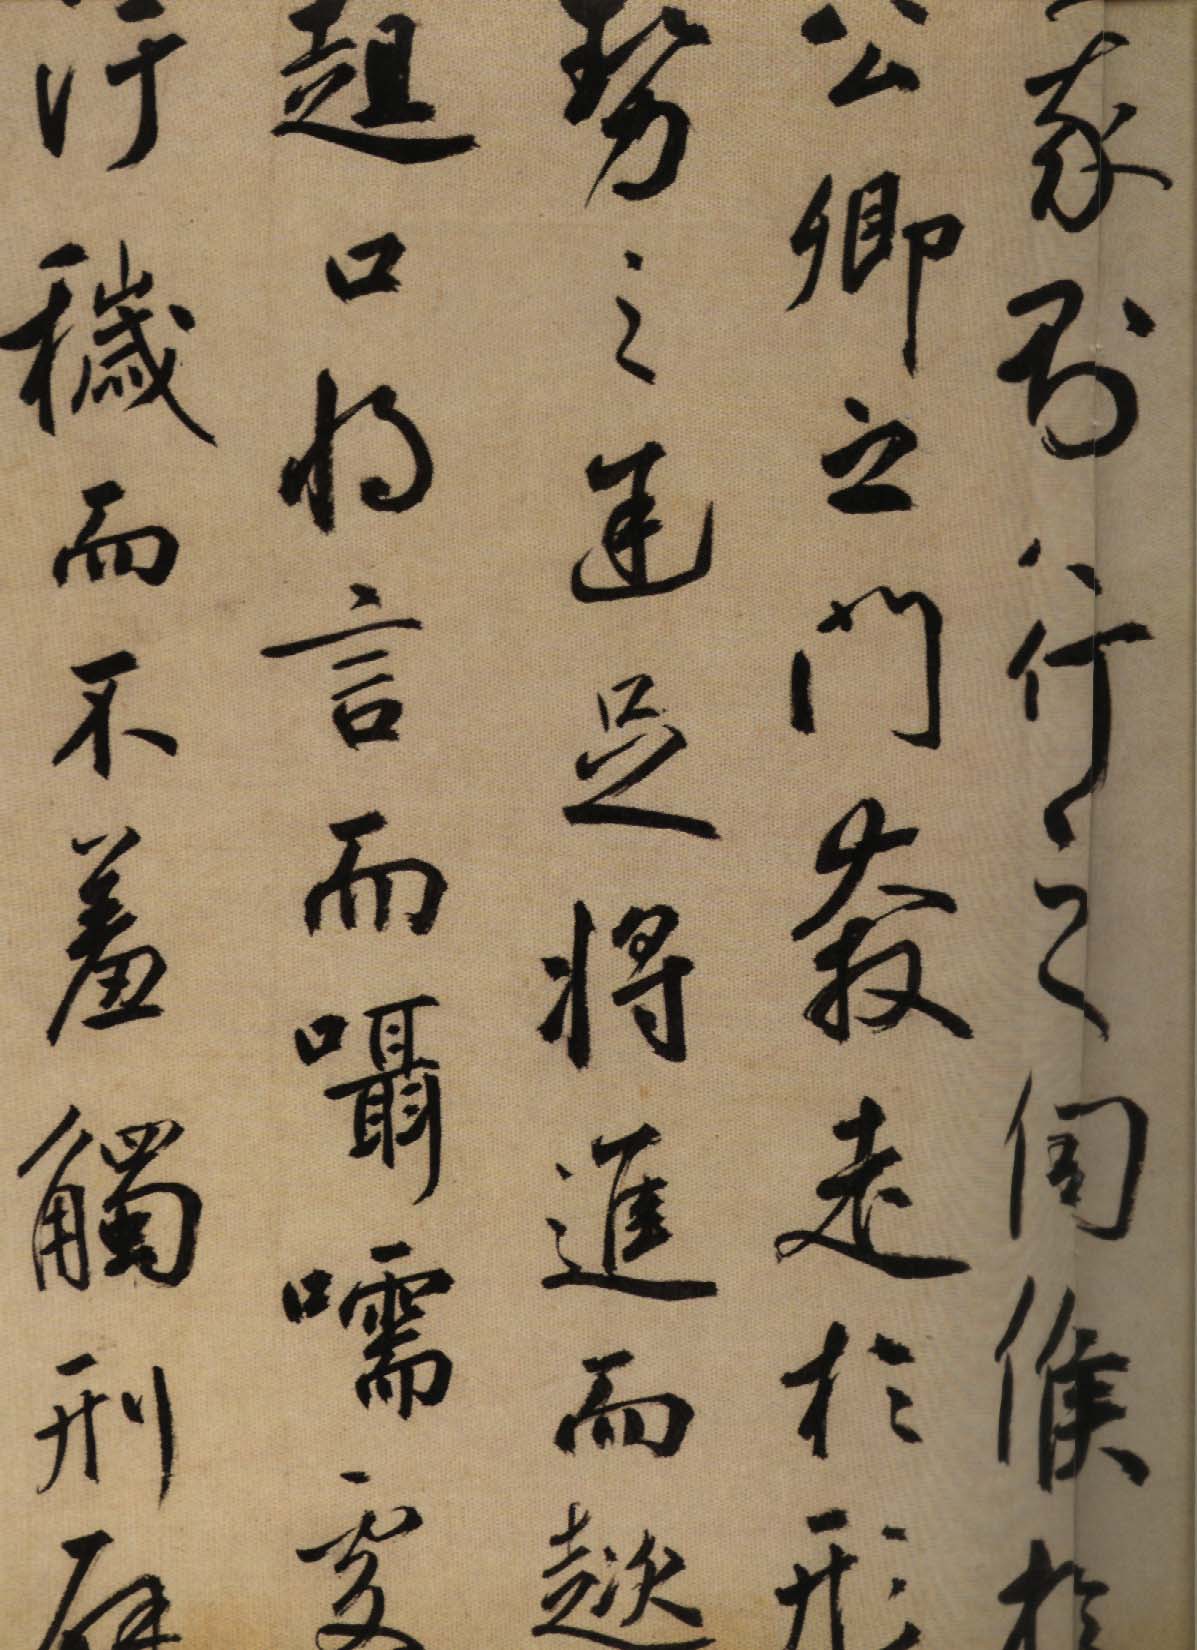 家則行之伺候於
公卿之門奔走於形
勢之途足將進而趑
趄口將言而囁嚅處
汙穢而不羞觸刑辟